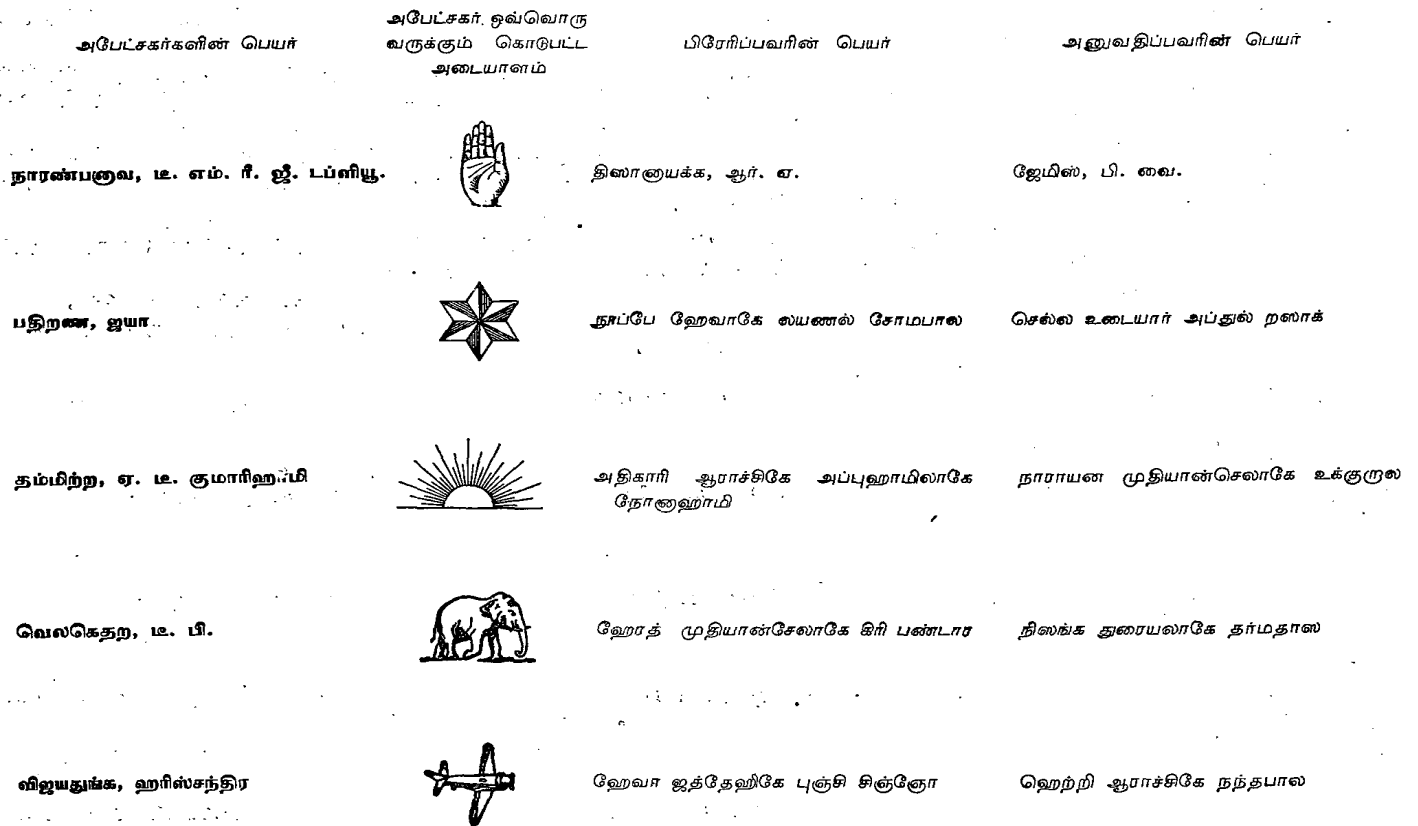 அபேட்சகர்களின் பெயர்
அபேட்சகர் ஒவ்வொரு
வருக்கும் கொடுபட்ட
அடையாளம்
பிரேரிப்பவரின் பெயர்
அனுவதிப்பவரின் பெயர்
நாரண்பனுவ, டீ. எம். ரீ. ஜீ. டப்ளியூ.
திஸானாயக்க, ஆர். ஏ.
ஜேமிஸ், பி. வை.
பதிறண, ஜயா
நூப்பே ஹேவாகே லயணல் சோமபால
செல்ல உடையார் அப்துல் றஸாக்
தம்மிற்ற, ஏ. டீ. குமாரிஹாமி
அதிகாரி ஆராச்சிகே அப்புஹாமிலாகே
நோனாஹாமி
நாராயன முதியான்செலாகே உக்குறால
வெலகெதற, டீ. பி.
ஹேரத் முதியான்சேலாகே கிரி பண்டார
நிஸங்க துரையலாகே தர்மதாஸ
விஜயதுங்க, ஹரிஸ்சந்திர
ஹேவா ஜத்தேஹிகே புஞ்சி சிஞ்ஞோ
ஹெற்றி ஆராச்சிகே நந்தபால